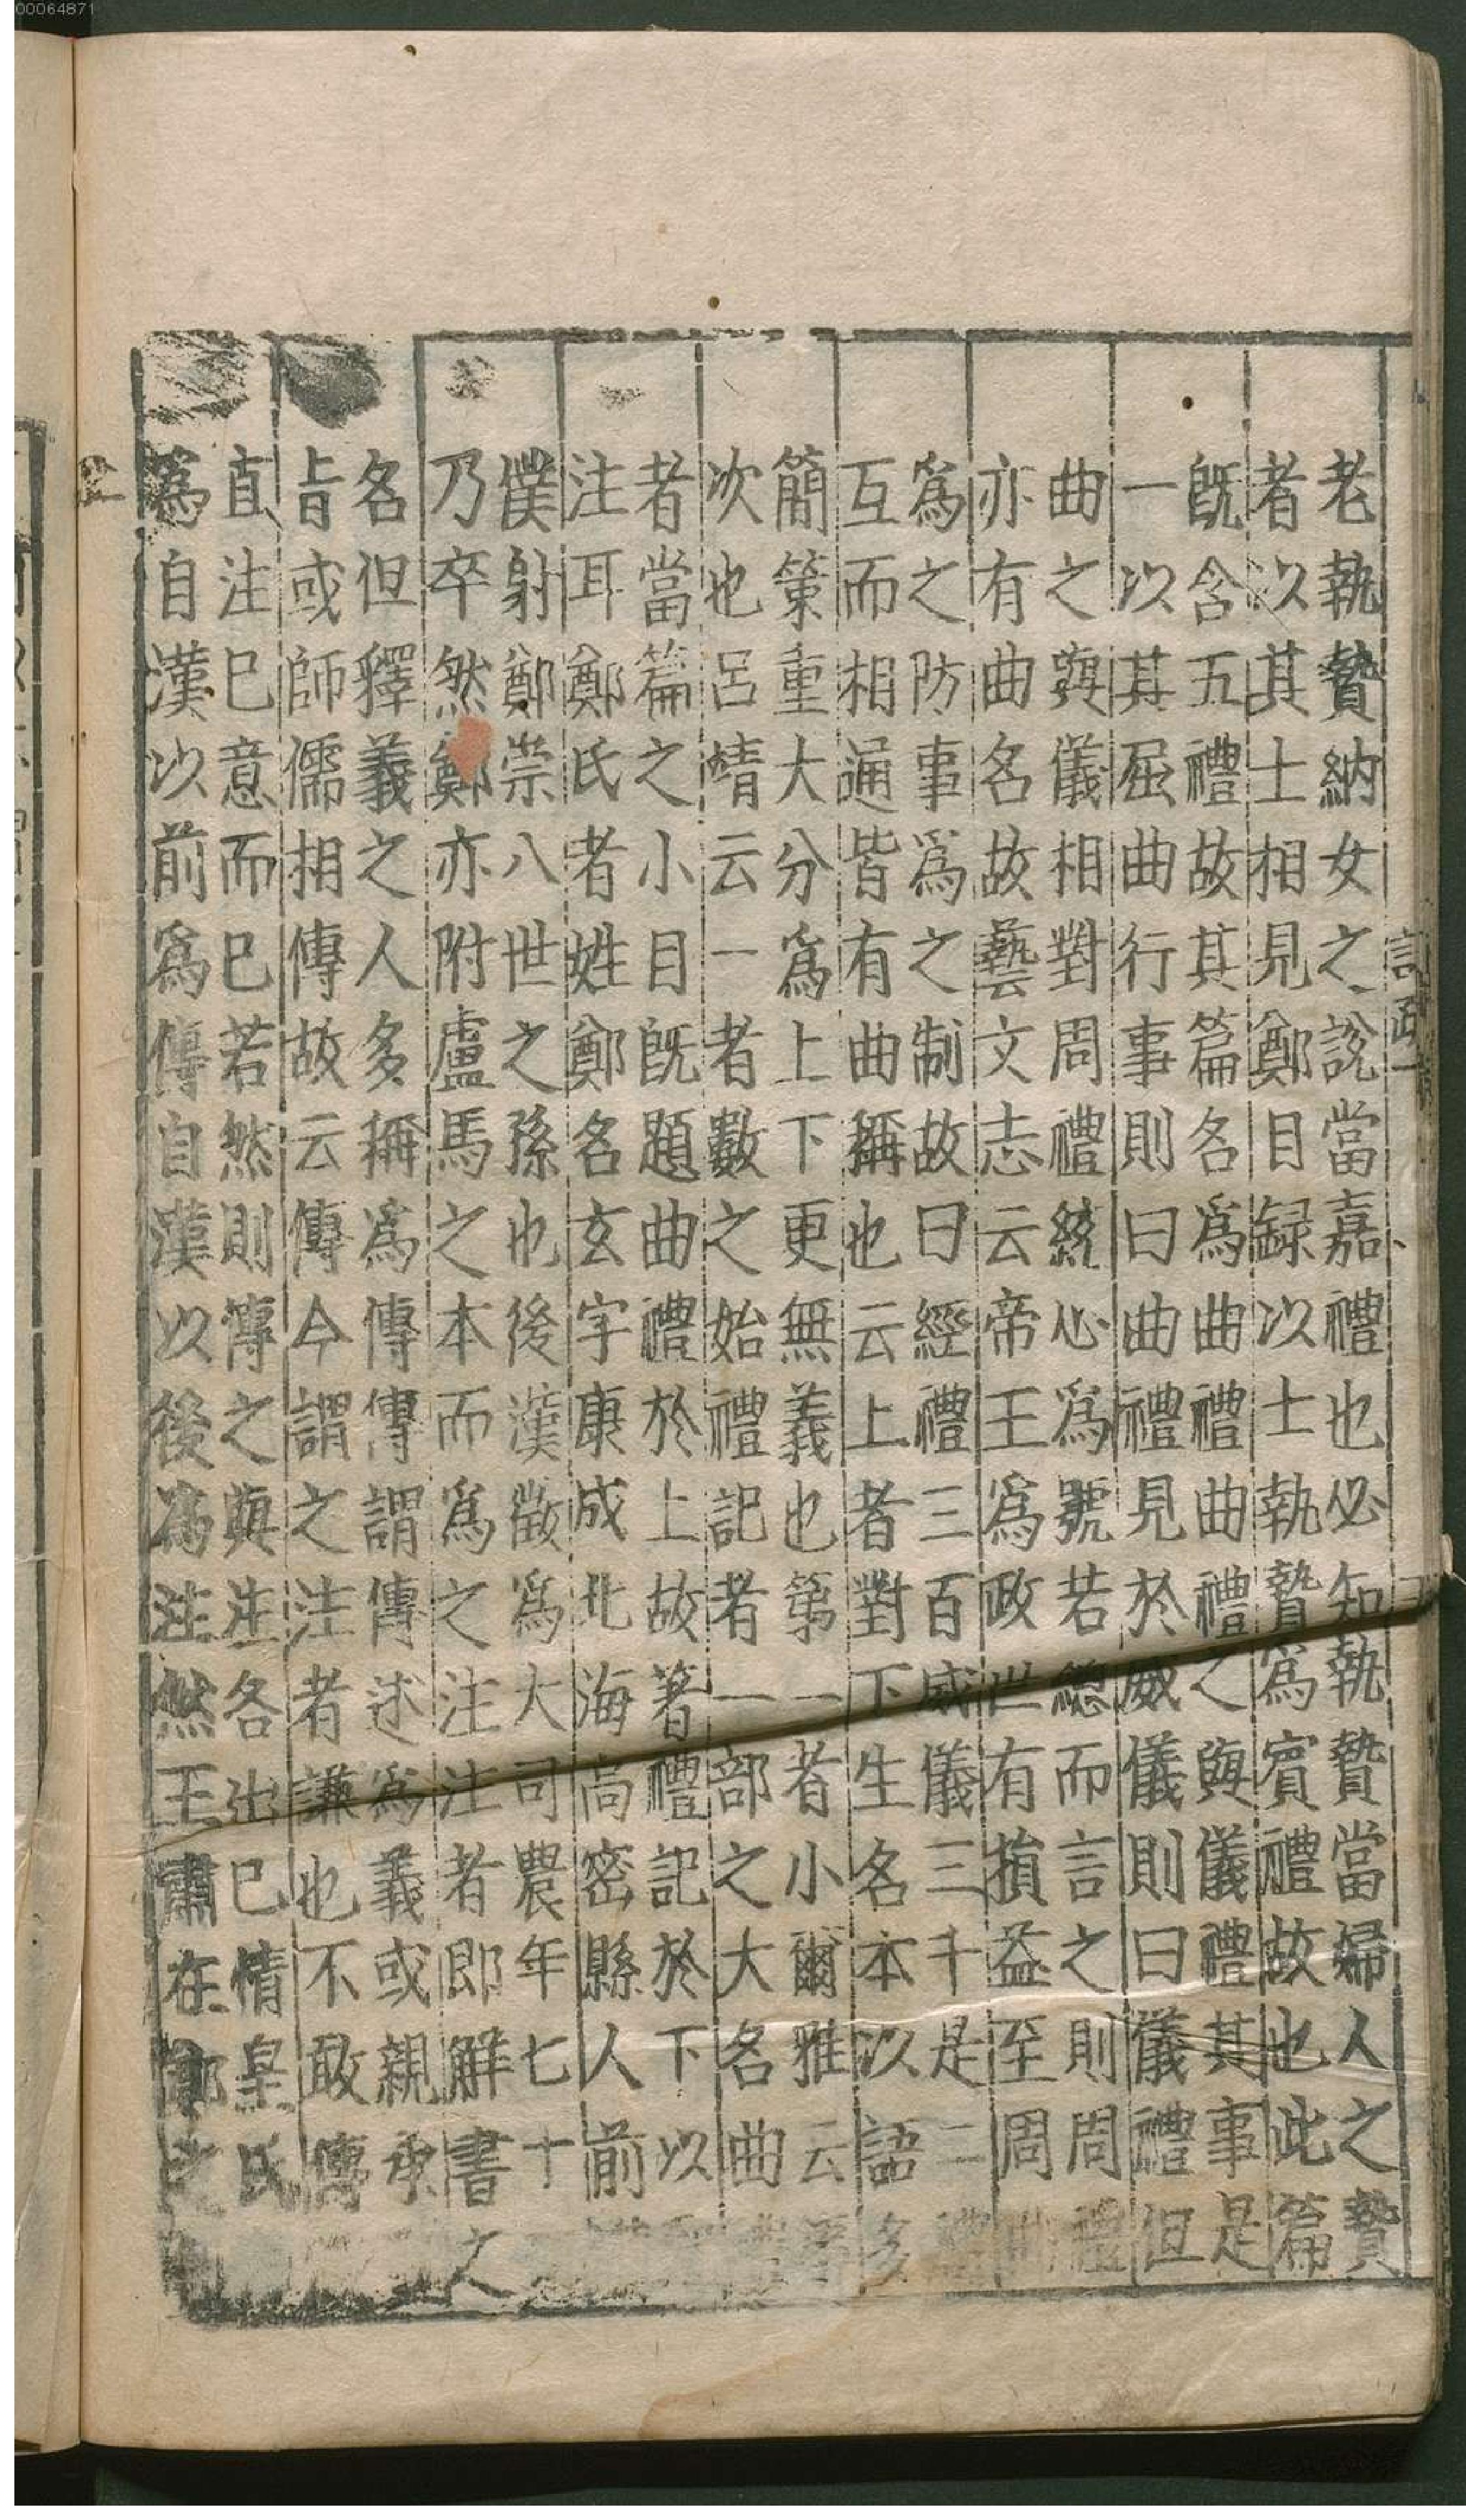 00064871
老執贄納女之說當嘉禮也必知執贄當婦人之贄
者以其士相見鄭目録以士執贄爲賓禮故也此篇
既含五禮故其篇名爲曲禮曲禮之與儀禮其事是
一以其屈曲行事則曰曲禮見於威儀則曰儀禮但
曲之與儀相對周禮統心爲號若總而言之則周禮
亦有曲名故藝文志云帝王爲政世有損益至周曲
爲之防事爲之制故曰經禮三百威儀三千是二禮
互而相通皆有曲稱也云上者對下生名本以語多
簡策重大分爲上下更無義也第一者小爾雅云
次也呂靖云一者數之始禮記者一部之大名曲
者當篇之小目既題曲禮於上故著禮記於下以
注耳鄭氏者姓鄭名玄字康成北海高密縣人前
僕射鄭崇八世之孫也後漢徵爲大司農年七十
乃卒然鄭亦附盧馬之本而爲之注注者即解書之
名但釋義之人多稱爲傳傳謂傳述爲義或親承
旨或師儒相傳故云傳今謂之注者謙也不敢傳
直注巳意而巳若然則傳之與注各出巳情皇氏
爲自漢以前爲傳自漢以後爲注然王肅在鄭之